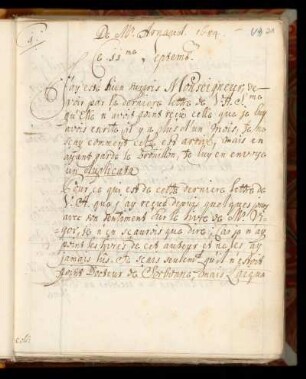 De Mr. Arnauld 1684
Ce 11.me Septemb.
J'ay esté bien surpris Monseigneur, de
voir par la derniere lettre de V. A. S.ma
qu'Elle n'avoit point reçu celle que je luy
avois écrite il y a plus d'un mois, Je ne
sçay comment cela est arrivé, mais en
ayant gardé le brouillon, je luy en envoye
un duplicata
Pour ce qui est de cette derniere lettre de
V. A. que j'ay reçue depuis quelques jours
avec son sentiment sur le livre de Mr
je n'en sçaurois que dire; Car je n'ay
point les livres de cet auteur et ne les ay
jamais lus. Je sçais seulement qu'il n'estoit
point Docteur de Sorbonne, mais